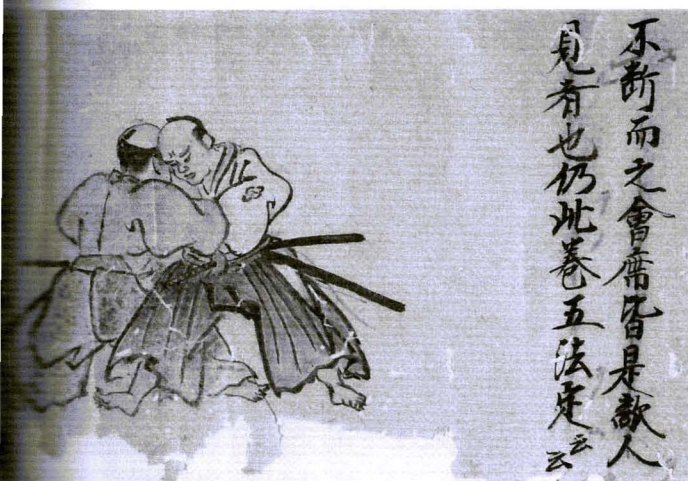 不断而之會席皆是敵人
見者也仍此巻五法定云云